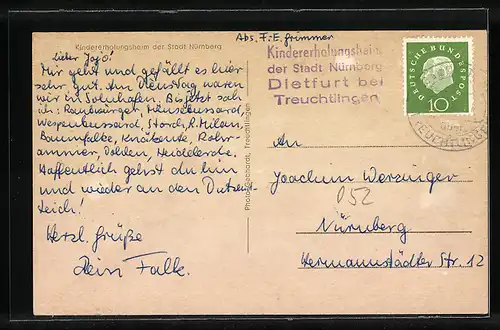 Kindererholungsheim der Stadt Nürnberg
Lieber Jojo!
Mir geht und gefällt es hier
sehr gut. Am Dienstag waren
wir in Solnhofen. Bis jetzt sah
ich: Raubwürger, Mäusebussard,
Wespenbussard, Storch, R. Milan,
Baumfalke, Knäkente, Rohr-
ammer, Dohlen, Heidelerche.
Hoffentlich gehst du hin
und wieder an den Dutzend-
teich!
Herzl. Grüße
Dein Falke.
Photo Gebhardt, Treuchtlingen
Abs. F.-E. Grimmer
Kindererholungsheim
der Stadt Nürnberg
Dietfurt bei
Treuchtlingen
DEUTSCHE BUNDESPOST
10
TREUCHTLINGEN
An
Joachim Werzinger
D52
Nürnberg
Hermannstädter Str. 12